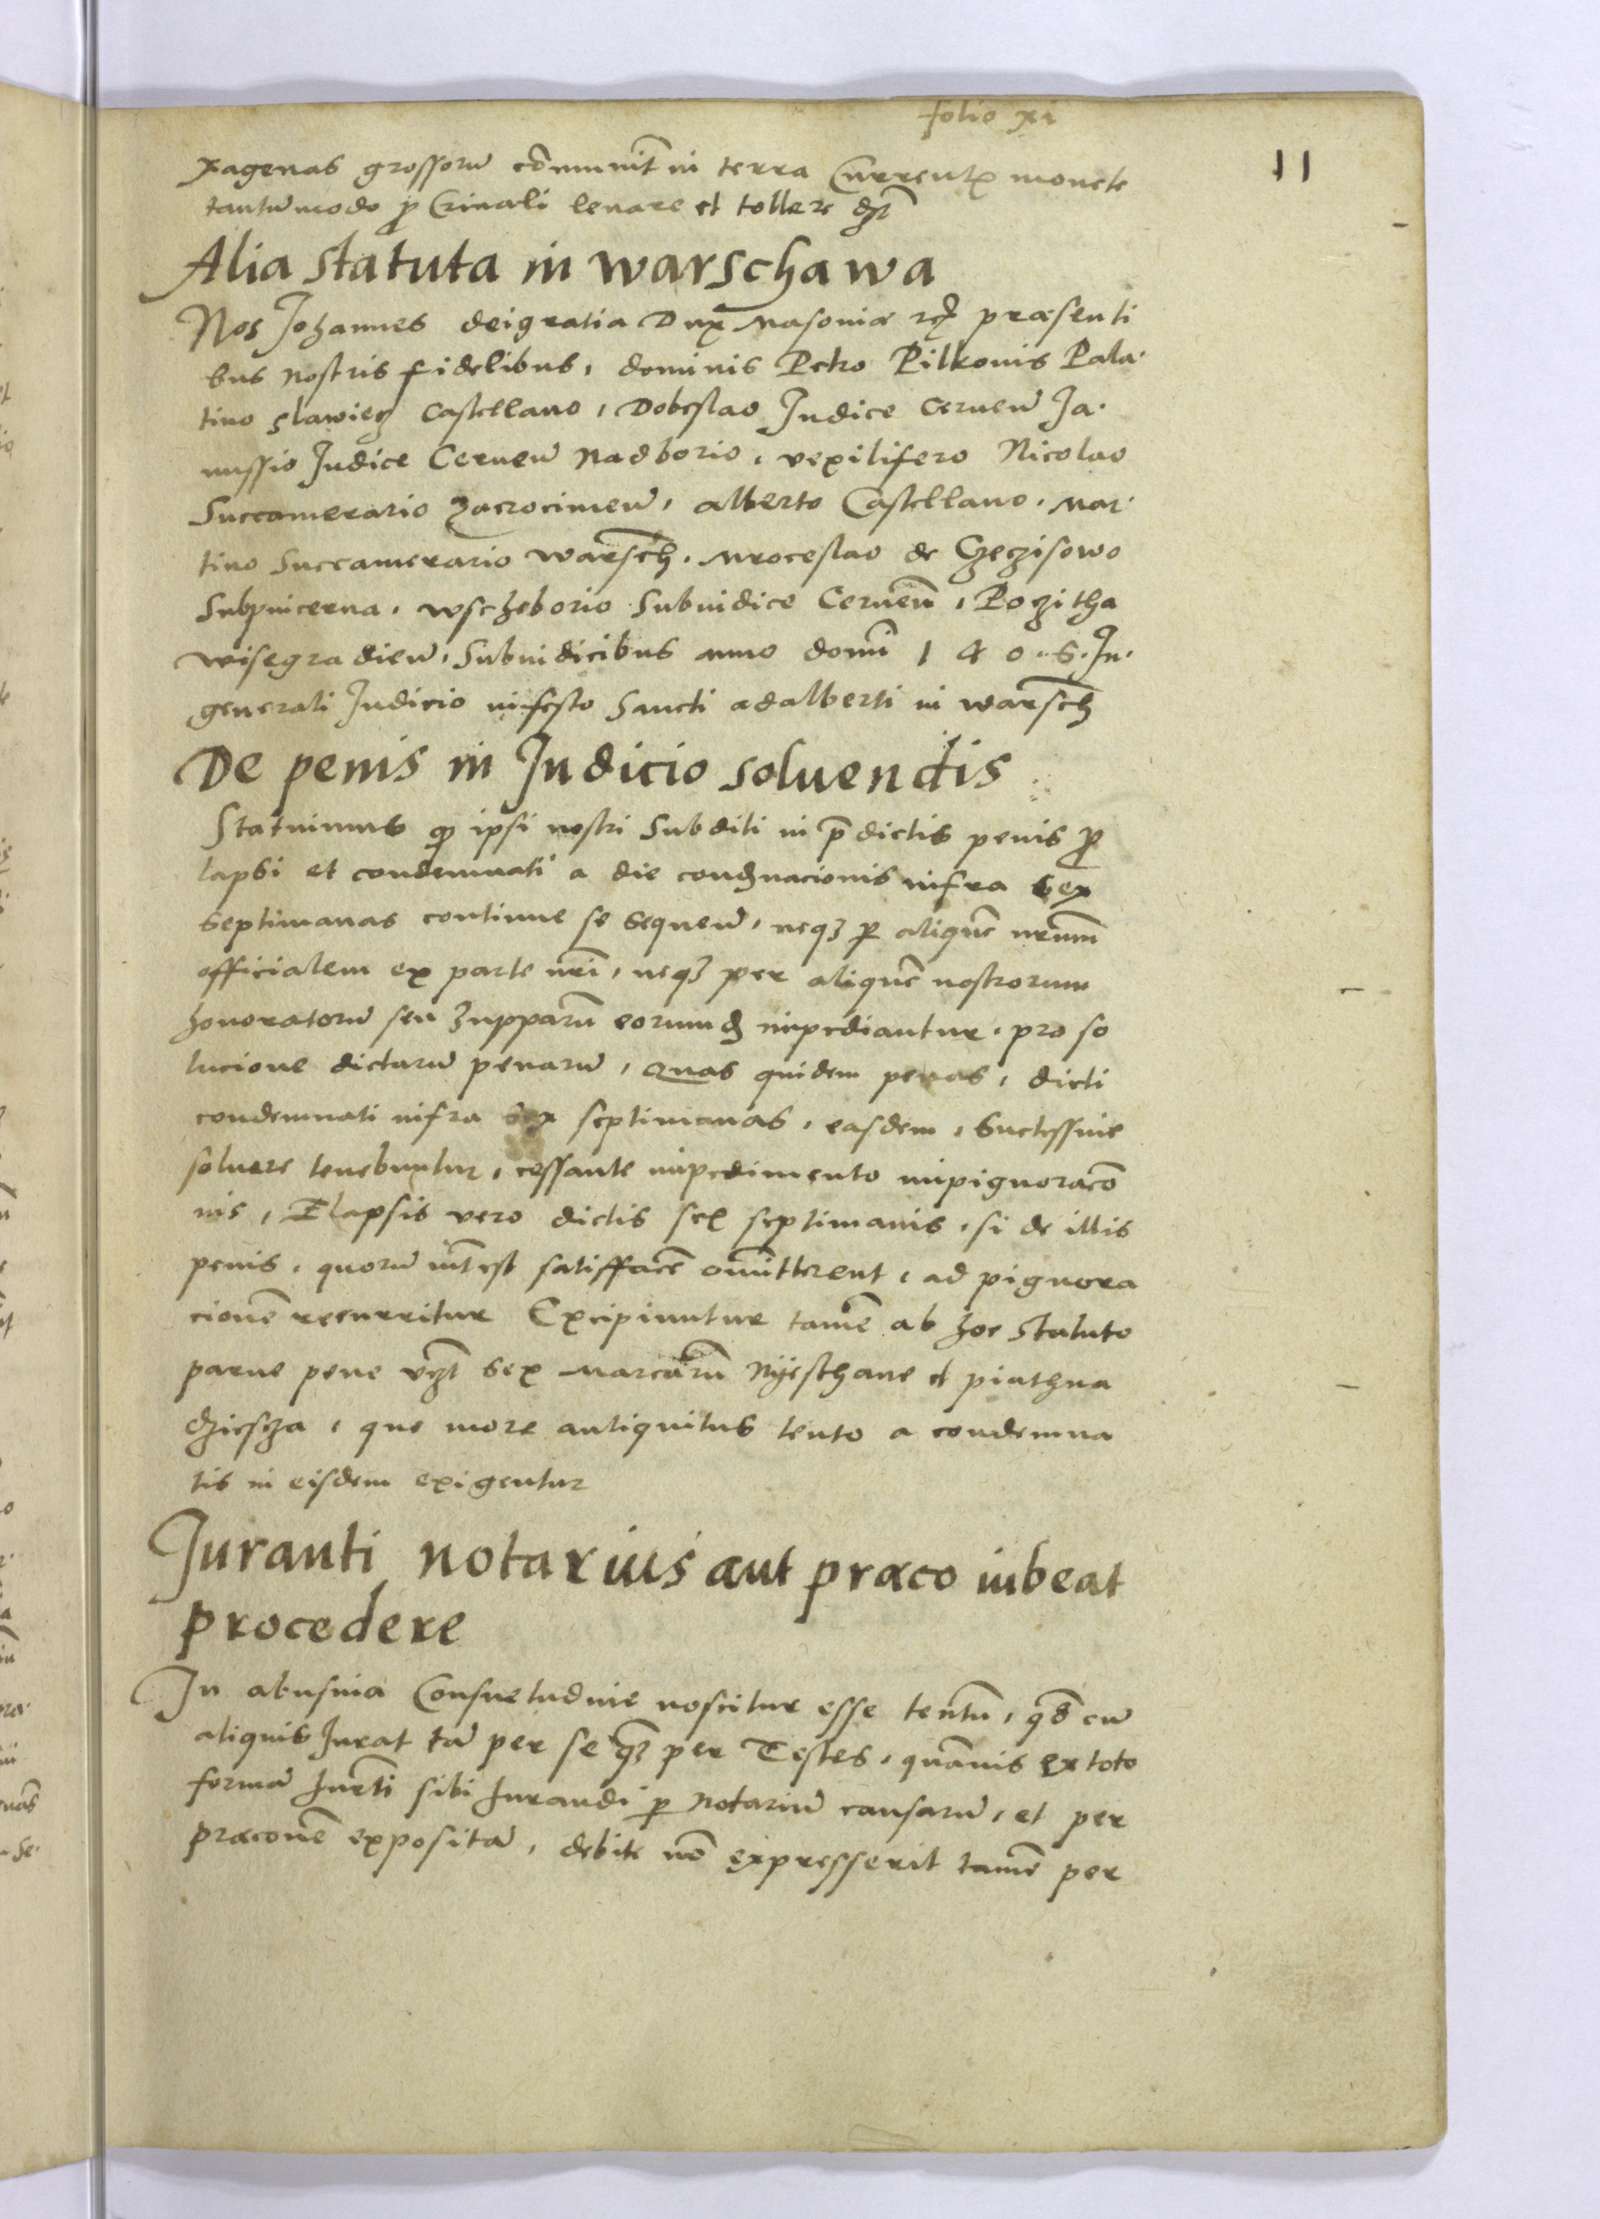 folio xi
11
xagenas grossorũ cõmunit̃ in terra Currentꝭ monete
tantũmodo ꝓ Crinali leuare et tollere
Alia statuta in warschawa
Nos Johannes deigratia Dux Masoniæ præsenti
bus nostris fidelibus, dominis Petro Pilkonis Pala.
tino slawiecz Castellano, Dobeslao Judice Cernen̄ Ja.
nussio Judice Cernen̄ Nadborio, vexilifero Nicolao
Succamerario Zacrocimen̄, alberto Castellano. Mar.
tino Succamerario warsch̄. Mroceslao de Czeczisowo
Subpincerna. wschzeborio Subiudice Cernen̄, Poczitha
wisegradien̄, Subiudicibus anno domĩ 1 4 0 . 6. In.
generali Judicio in festo Sancti adalberti in warsch̄
De penis in Judicio soluendis
Statuimus ꝙ ipsi nostri Subditi in p̄dictis penis ꝓ
lapsi et condemnati a die condẽnacionis infra Sex
Septimanas continue se Sequen̄, neqꝫ ꝑ aliquẽ nr̃um
officialem ex parte nrĩ, neqꝫ per aliquẽ nostrorum
honoratorũ seu Zupparũ eorumd impediantur. pro so
lucione dictarũ penarũ, Quas quidem penas, dicti
condemnati infra sex septimanas, easdem, Successiue
soluere tenebuntur, cessante impedimento impignoracõ
nis, Elapsis vero dictis sex septimanis, si de illis
penis, quorũ int̃est satisfacẽ omĩtterent, ad pignora
cionẽ recurritur Excipiuntur tamẽ ab hoc Statuto
parue pene vꝫt Sex Marcarũ Nijeschane et piathna
dziescza, que more antiquitus tento a condemna
tis in eisdem exigentur
Juranti notarius aut præco iubeat
procedere
In abusiua Consuetudine noscitur esse tentũ, qđ cũ
aliquis Jurat tã per se qꝫ per Testes, quãuis ex toto
formã Jurñti sibi Jurandi ꝑ Notariũ causarũ, et per
præconẽ expositã, debite nõ expresserit tamẽ per